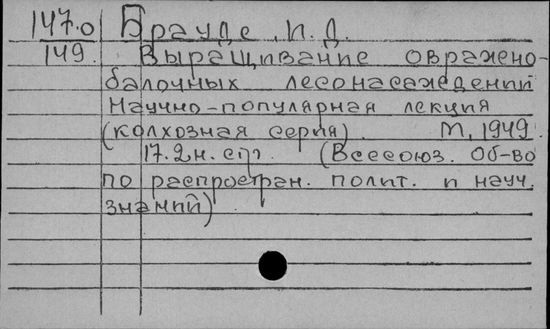 147.0 Брауде, И.Д.
149. Выращивание овражено-
балочных лесонасаждений
Научно-популярная лекция
(колхозная серия). М, 1949.
17.2н. стр. (Всесоюз. Об-во
по распростран. полит. и науч.
знаний)